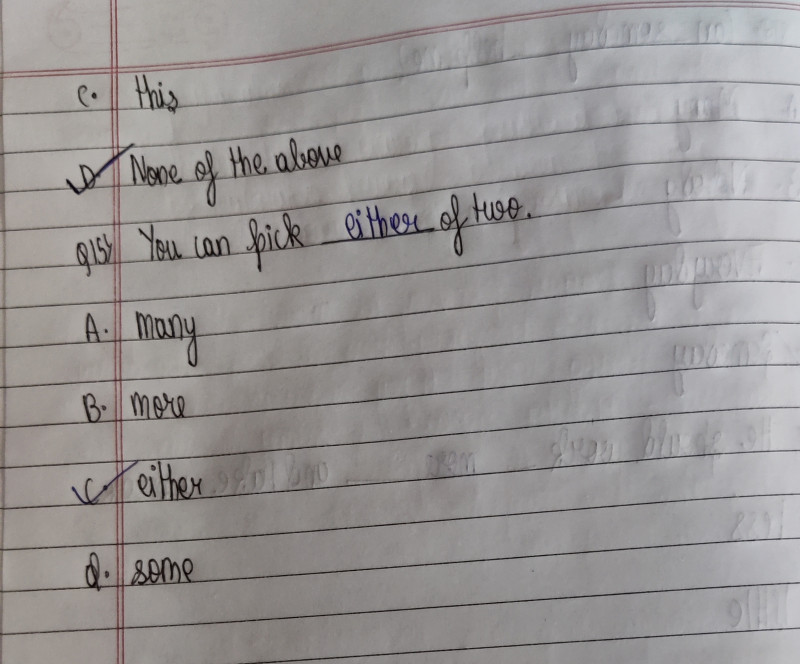 C. this
D None of the above
Q15) You can pick either of two.
A. many
B. more
C. either
d. some